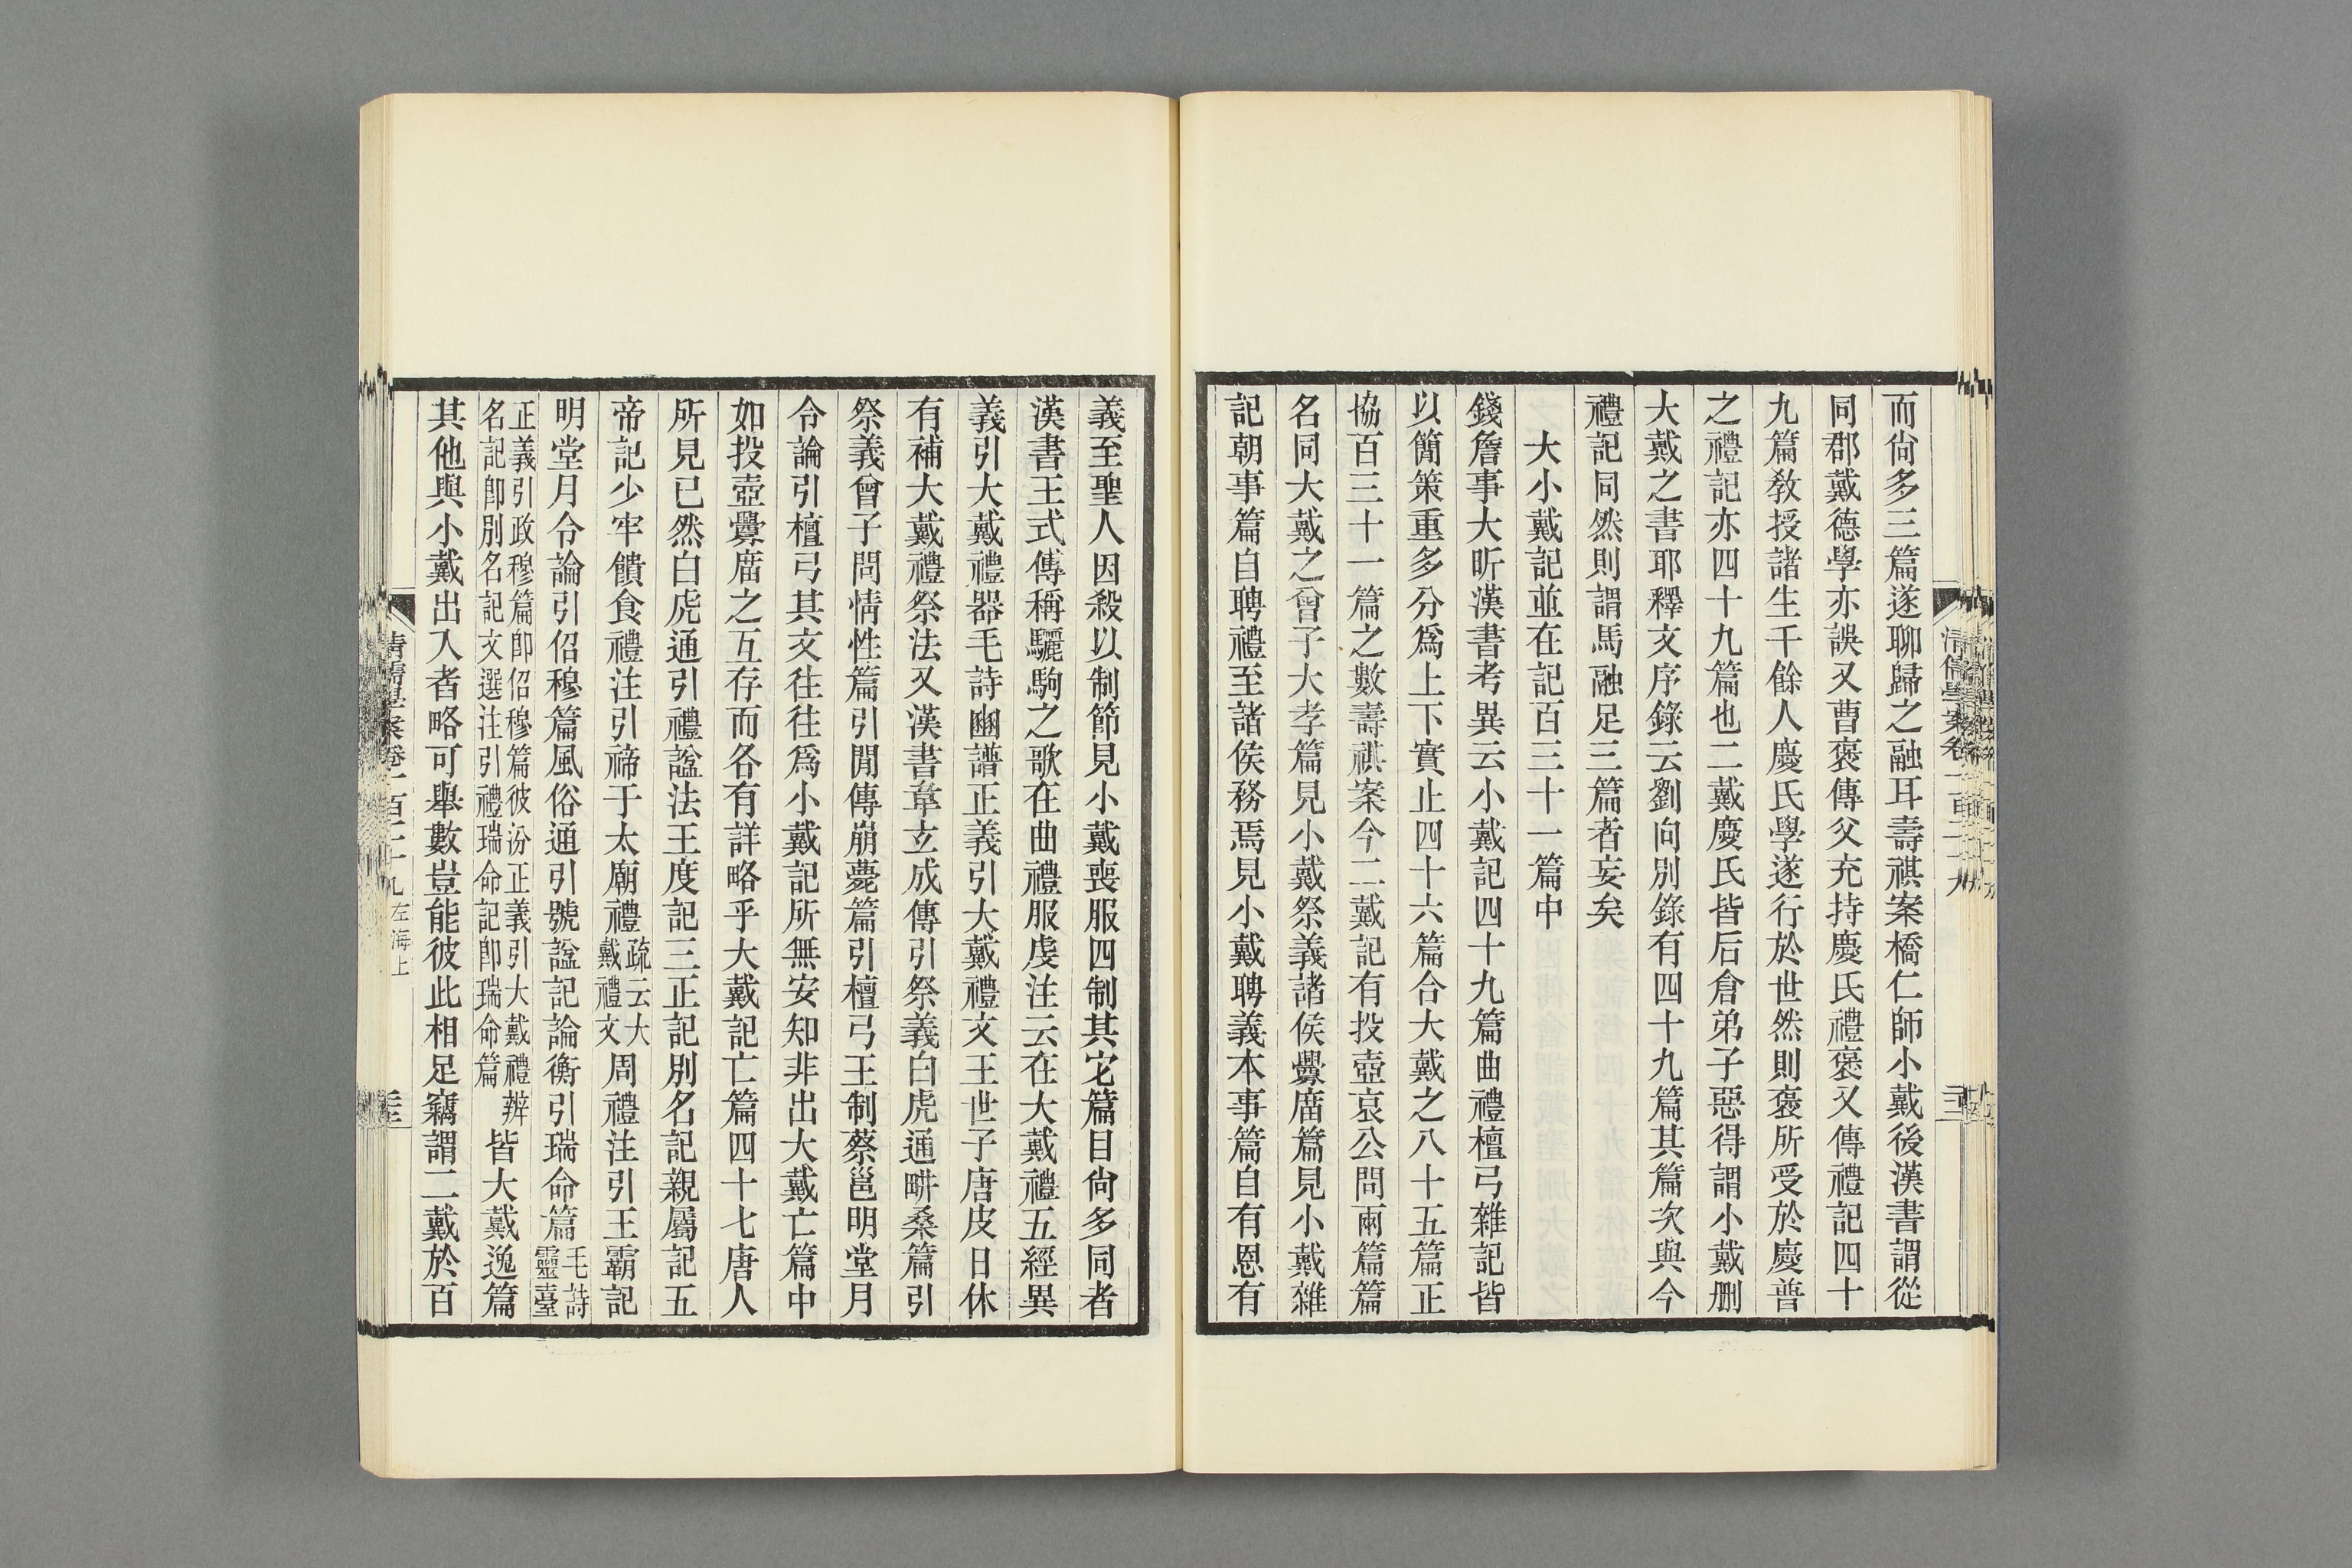 而尙多三篇遂聊歸之融耳壽祺案橋仁師小戴後漢書謂從
同郡戴德學亦誤又曹褒傳父充持慶氏禮褒又傳禮記四十
九篇敎授諸生千餘人慶氏學遂行於世然則褒所受於慶普
之禮記亦四十九篇也二戴慶氏皆后倉弟子惡得謂小戴刪
大戴之書耶釋文序錄云劉向別錄有四十九篇其篇次與今
禮記同然則謂馬融足三篇者妄矣
大小戴記並在記百三十一篇中
錢詹事大昕漢書考異云小戴記四十九篇曲禮檀弓雜記皆
以簡策重多分爲上下實止四十六篇合大戴之八十五篇正
協百三十一篇之數壽祺案今二戴記有投壺哀公問兩篇篇
名同大戴之曾子大孝篇見小戴祭義諸侯釁廟篇見小戴雜
記朝事篇自聘禮至諸侯務焉見小戴聘義本事篇自有恩有
義至聖人因殺以制節見小戴喪服四制其它篇目尙多同者
漢書王式傳稱驪駒之歌在曲禮服虔注云在大戴禮五經異
義引大戴禮器毛詩豳譜正義引大戴禮文王世子唐皮日休
有補大戴禮祭法又漢書韋玄成傳引祭義白虎通畊桑篇引
祭義曾子問情性篇引閒傳崩薨篇引檀弓王制蔡邕明堂月
令論引檀弓其文往往爲小戴記所無安知非出大戴亡篇中
如投壺釁廟之互存而各有詳略乎大戴記亡篇四十七唐人
所見已然白虎通引禮諡法王度記三正記別名記親屬記五
帝記少牢饋食禮注引禘于太廟禮疏云大戴禮文周禮注引王霸記
明堂月令論引佋穆篇風俗通引號諡記論衡引瑞命篇毛詩靈臺
正義引政穆篇卽佋穆篇彼汾正義引大戴禮辨名記卽別名記文選注引禮瑞命記卽瑞命篇皆大戴逸篇
其他與小戴出入者略可舉數豈能彼此相足竊謂二戴於百
清儒學案卷一百二十九 左海上